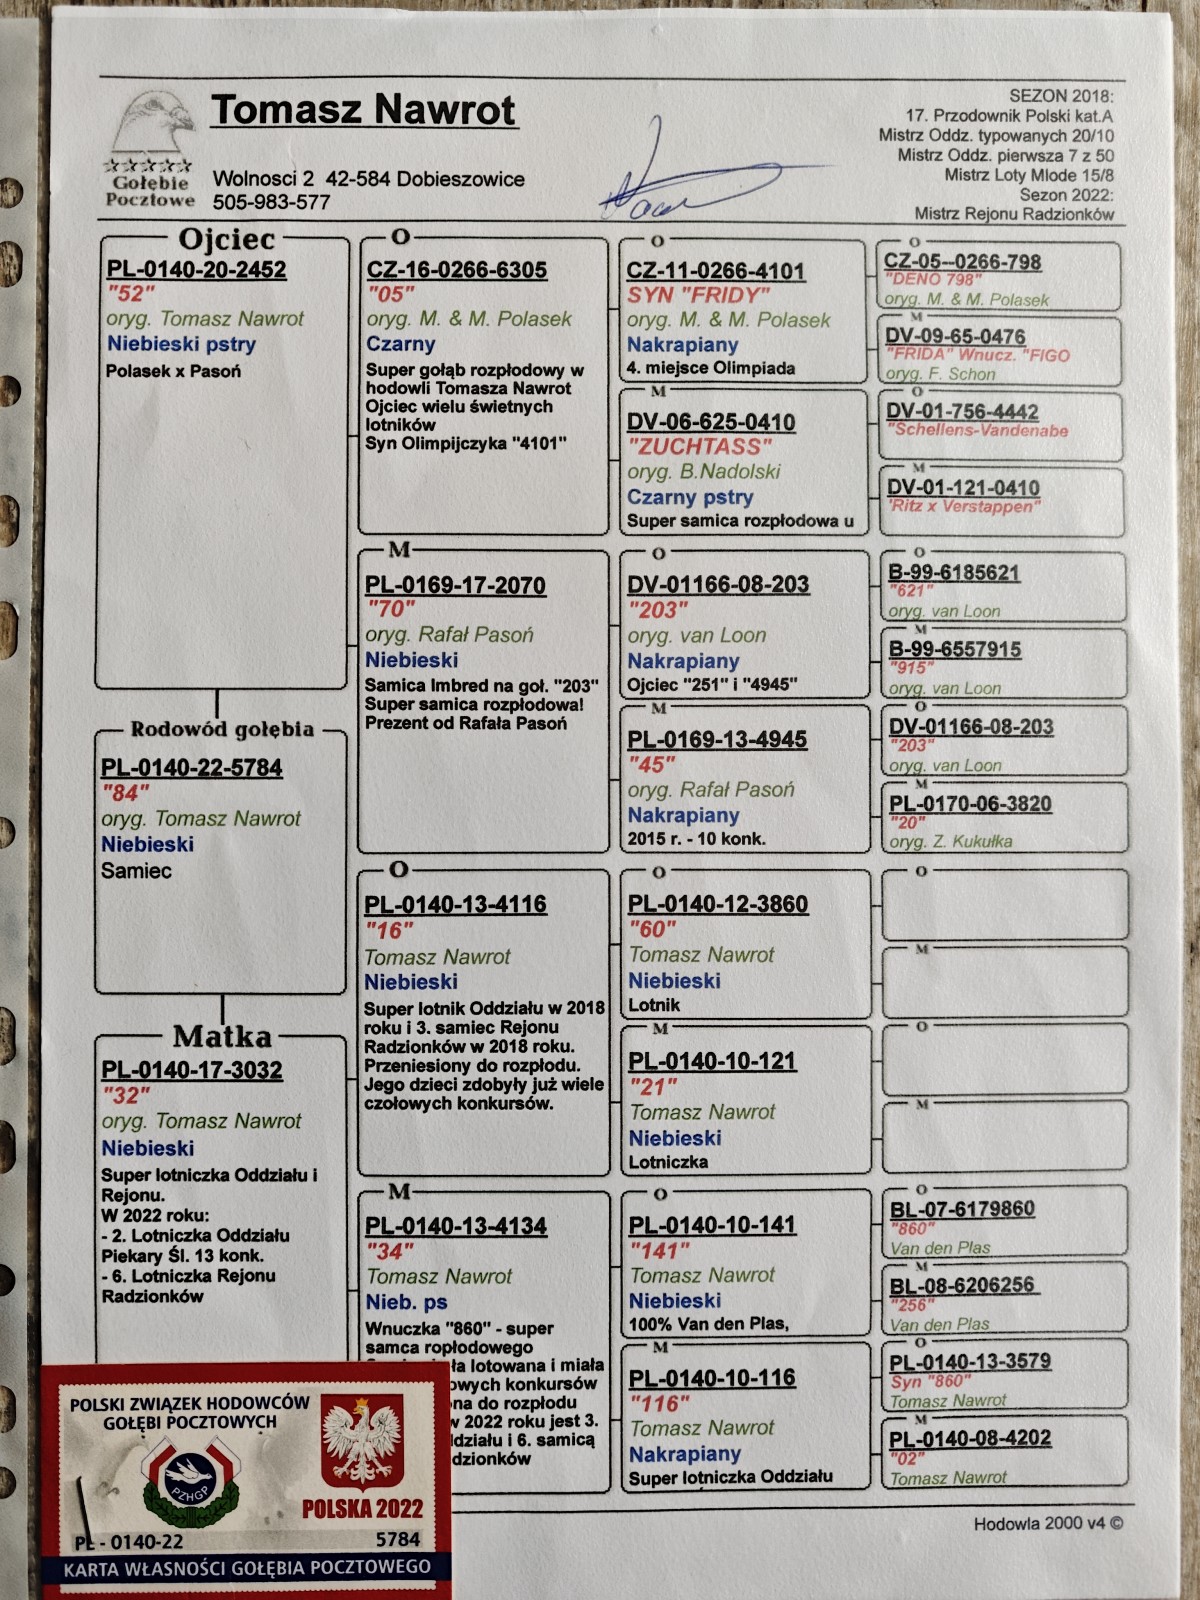 Tomasz Nawrot
Wolnosci 2 42-584 Dobieszowice
505-983-577
Gołębie
Pocztowe
SEZON 2018:
17. Przodownik Polski kat.A
Mistrz Oddz. typowanych 20/10
Mistrz Oddz. pierwsza 7 z 50
Mistrz Loty Mlode 15/8
Sezon 2022:
Mistrz Rejonu Radzionków
Ojciec
PL-0140-20-2452
"52"
oryg. Tomasz Nawrot
Niebieski pstry
Polasek x Pasoń
Rodowód gołębia
PL-0140-22-5784
"84"
oryg. Tomasz Nawrot
Niebieski
Samiec
Matka
PL-0140-17-3032
"32"
oryg. Tomasz Nawrot
Niebieski
Super lotniczka Oddziału i
Rejonu.
W 2022 roku:
- 2. Lotniczka Oddziału
Piekary Śl. 13 konk.
- 6. Lotniczka Rejonu
Radzionków
O
CZ-16-0266-6305
"05"
oryg. M. & M. Polasek
Czarny
Super gołąb rozpłodowy w
hodowli Tomasza Nawrot
Ojciec wielu świetnych
lotników
Syn Olimpijczyka "4101"
M
PL-0169-17-2070
"70"
oryg. Rafał Pasoń
Niebieski
Samica Imbred na goł. "203"
Super samica rozpłodowa!
Prezent od Rafała Pasoń
O
PL-0140-13-4116
"16"
Tomasz Nawrot
Niebieski
Super lotnik Oddziału w 2018
roku i 3. samiec Rejonu
Radzionków w 2018 roku.
Przeniesiony do rozpłodu.
Jego dzieci zdobyły już wiele
czołowych konkursów.
M
PL-0140-13-4134
"34"
Tomasz Nawrot
Nieb. ps
Wnuczka "860" - super
samca ropłodowego
lotowana i miała
owych konkursów
na do rozpłodu
w 2022 roku jest 3.
działu i 6. samicą
dzionków
O
CZ-11-0266-4101
SYN "FRIDY"
oryg. M. & M. Polasek
Nakrapiany
4. miejsce Olimpiada
M
DV-06-625-0410
"ZUCHTASS"
oryg. B.Nadolski
Czarny pstry
Super samica rozpłodowa u
O
DV-01166-08-203
"203"
oryg. van Loon
Nakrapiany
Ojciec "251" i "4945"
M
PL-0169-13-4945
"45"
oryg. Rafał Pasoń
Nakrapiany
2015 r. - 10 konk.
O
PL-0140-12-3860
"60"
Tomasz Nawrot
Niebieski
Lotnik
M
PL-0140-10-121
"21"
Tomasz Nawrot
Niebieski
Lotniczka
O
PL-0140-10-141
"141"
Tomasz Nawrot
Niebieski
100% Van den Plas,
M
PL-0140-10-116
"116"
Tomasz Nawrot
Nakrapiany
Super lotniczka Oddziału
O
CZ-05--0266-798
"DENO 798"
oryg. M. & M. Polasek
M
DV-09-65-0476
"FRIDA" Wnucz. "FIGO
oryg. F. Schon
O
DV-01-756-4442
"Schellens-Vandenabe
M
DV-01-121-0410
'Ritz x Verstappen"
O
B-99-6185621
"621"
oryg. van Loon
M
B-99-6557915
"915"
oryg. van Loon
O
DV-01166-08-203
"203"
oryg. van Loon
M
PL-0170-06-3820
"20"
oryg. Z. Kukułka
O
M
O
M
O
BL-07-6179860
"860"
Van den Plas
M
BL-08-6206256
"256"
Van den Plas
O
PL-0140-13-3579
Syn "860"
Tomasz Nawrot
M
PL-0140-08-4202
"02"
Tomasz Nawrot
Hodowla 2000 v4 ©
POLSKI ZWIĄZEK HODOWCÓW
GOŁĘBI POCZTOWYCH
PZHGP
POLSKA 2022
PL - 0140-22 5784
KARTA WŁASNOŚCI GOŁĘBIA POCZTOWEGO